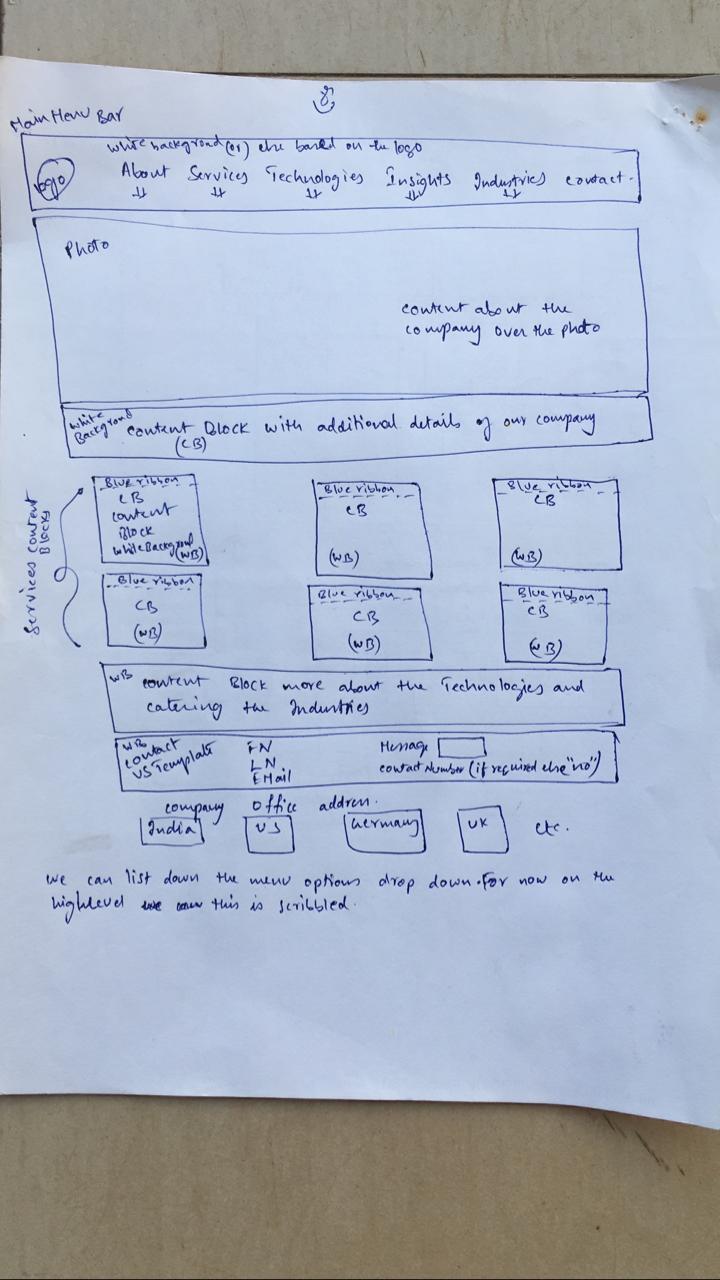 Main Menu Bar
white background (or) else based on the logo
logo
About Services Technologies Insights Industries contact.
Photo
content about the
company over the photo
White
Background
content Block with additional details of our company
(CB)
Services content
Blocks
Blue ribbon
CB
content
Block
white Background
(WB)
Blue ribbon
CB
(WB)
Blue ribbon
CB
(WB)
Blue ribbon
CB
(WB)
Blue ribbon
CB
(WB)
Blue ribbon
CB
(WB)
WB
content Block more about the Technologies and
catering the Industries
WB
contact
US Template
FN
LN
EMail
Message
contact Number (if required else "no")
company office address.
India US Germany UK etc.
we can list down the menu options drop down. For now on the
highlevel this is scribbled.